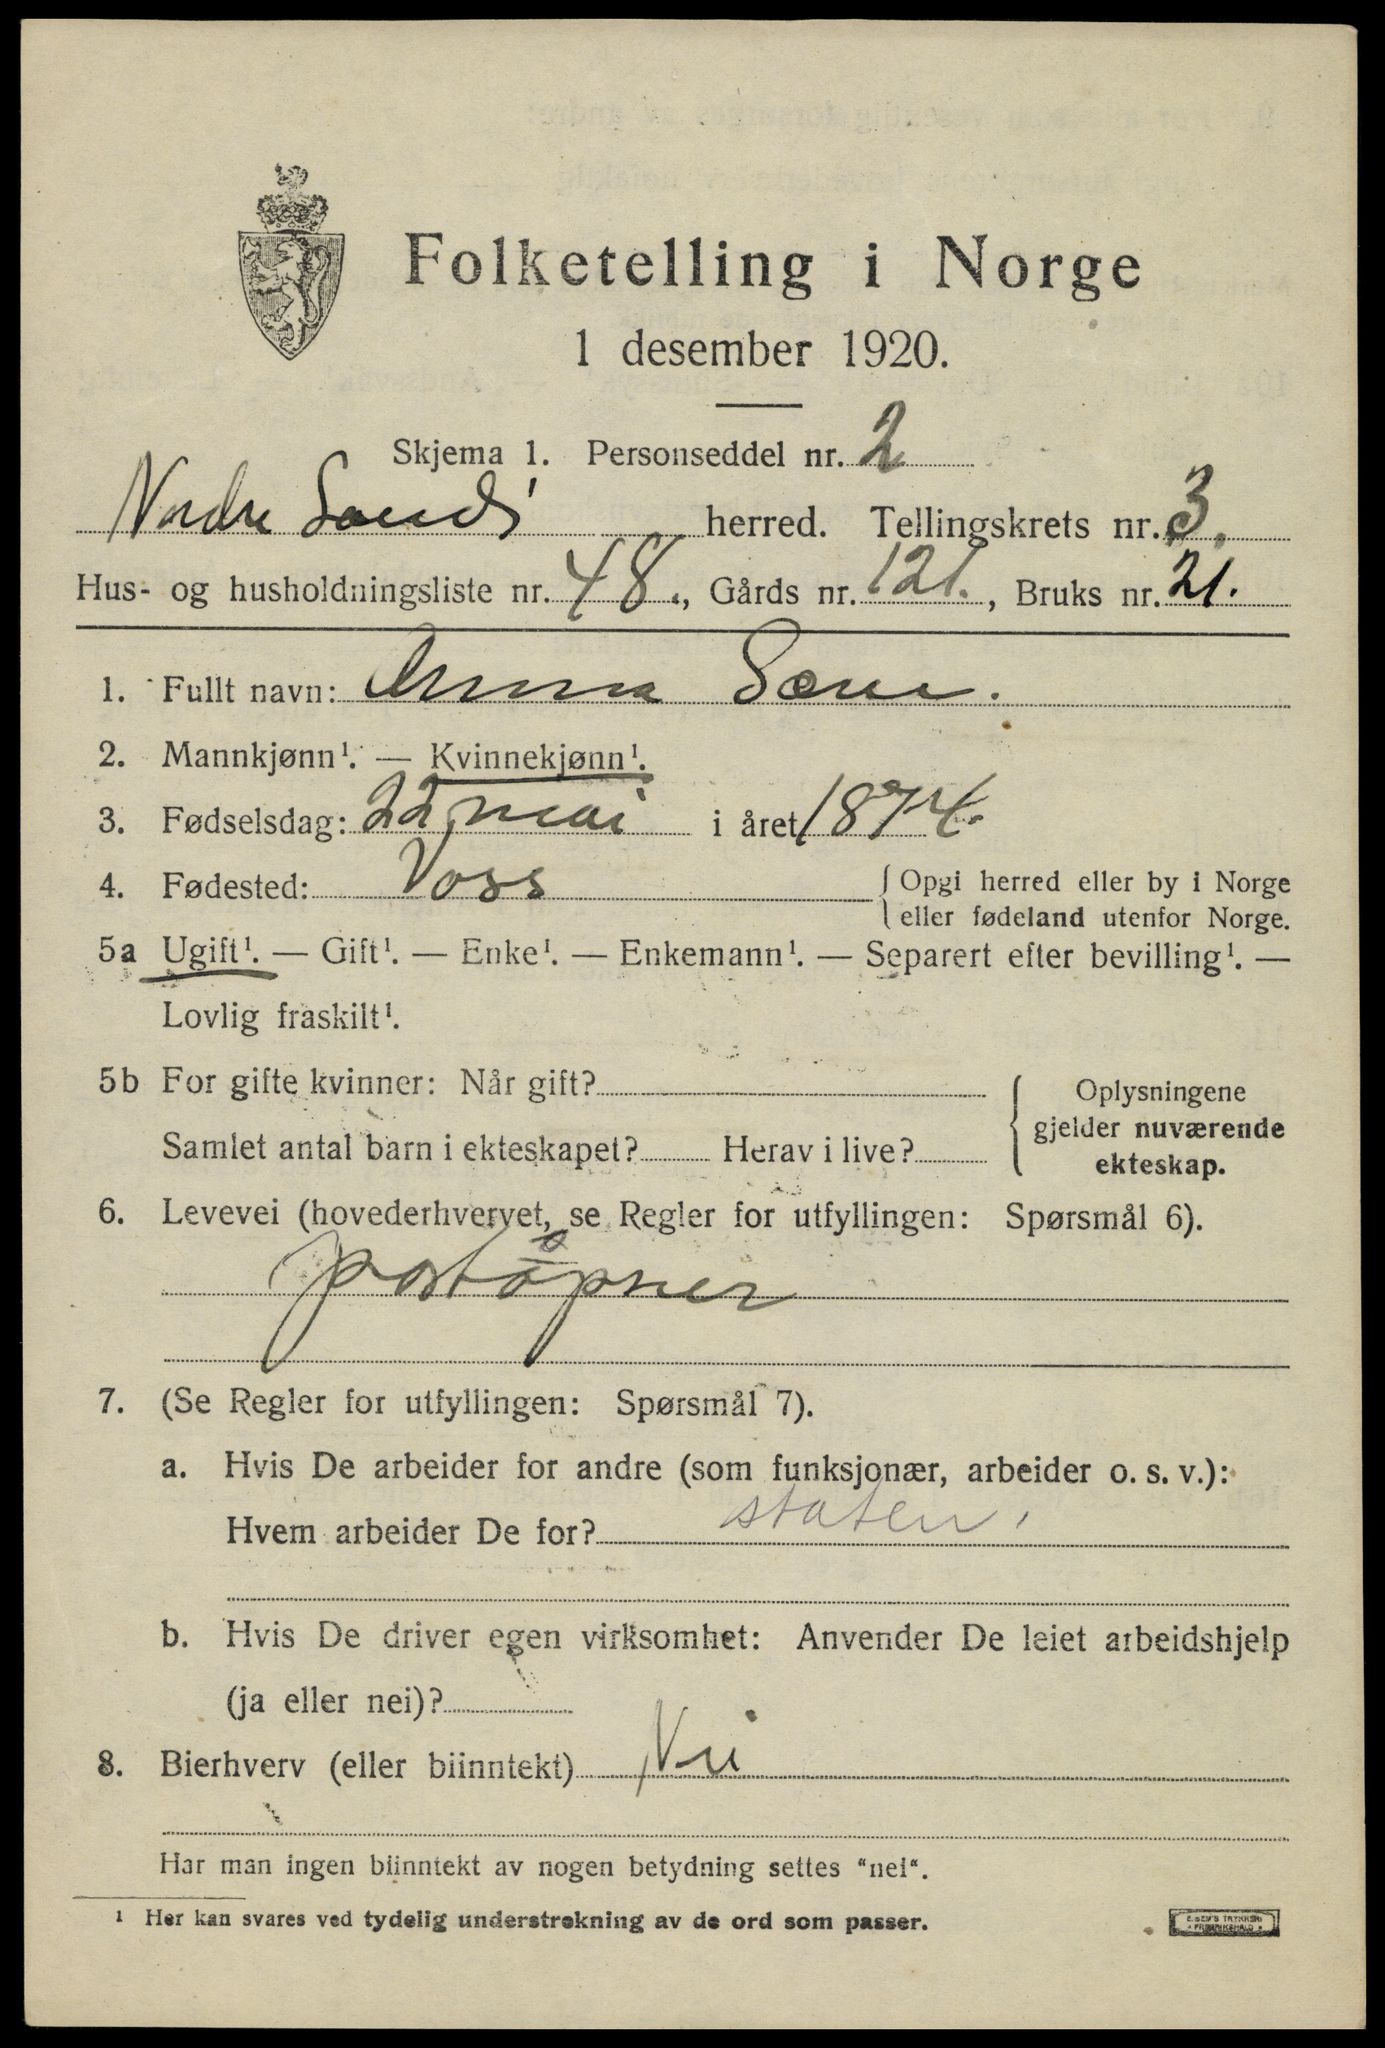 Folketelling i Norge
1 desember 1920.
Skjema 1. Personseddel nr. 2
Nordre Land herred. Tellingskrets nr. 3.
Hus- og husholdningsliste nr. 48., Gårds nr. 121., Bruks nr. 21.
1. Fullt navn: Anna
2. Mannkjønn¹. — Kvinnekjønn¹.
3. Fødselsdag: 22 mai i året 1874.
4. Fødested: Voss { Opgi herred eller by i Norge
eller fødeland utenfor Norge.
5a Ugift¹. — Gift¹. — Enke¹. — Enkemann¹. — Separert efter bevilling¹. —
Lovlig fraskilt¹.
5b For gifte kvinner: Når gift?
Samlet antal barn i ekteskapet? Herav i live?
{ Oplysningene
gjelder nuværende
ekteskap.
6. Levevei (hovederhvervet, se Regler for utfyllingen: Spørsmål 6).
postopner
7. (Se Regler for utfyllingen: Spørsmål 7).
a. Hvis De arbeider for andre (som funksjonær, arbeider o. s. v.):
Hvem arbeider De for? staten.
b. Hvis De driver egen virksomhet: Anvender De leiet arbeidshjelp
(ja eller nei)?
8. Bierhverv (eller biinntekt) Nei
Har man ingen biinntekt av nogen betydning settes "nei".
¹ Her kan svares ved tydelig understrekning av de ord som passer.
E. SEM'S TRYKKERI
FREDRIKSHALD